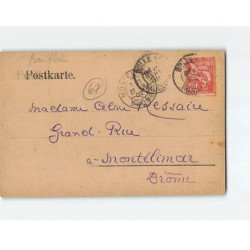 Bas Rhin
Postkarte.
67
Madame Celine Messaire
Grand, Rue
à Montélimar
Drôme